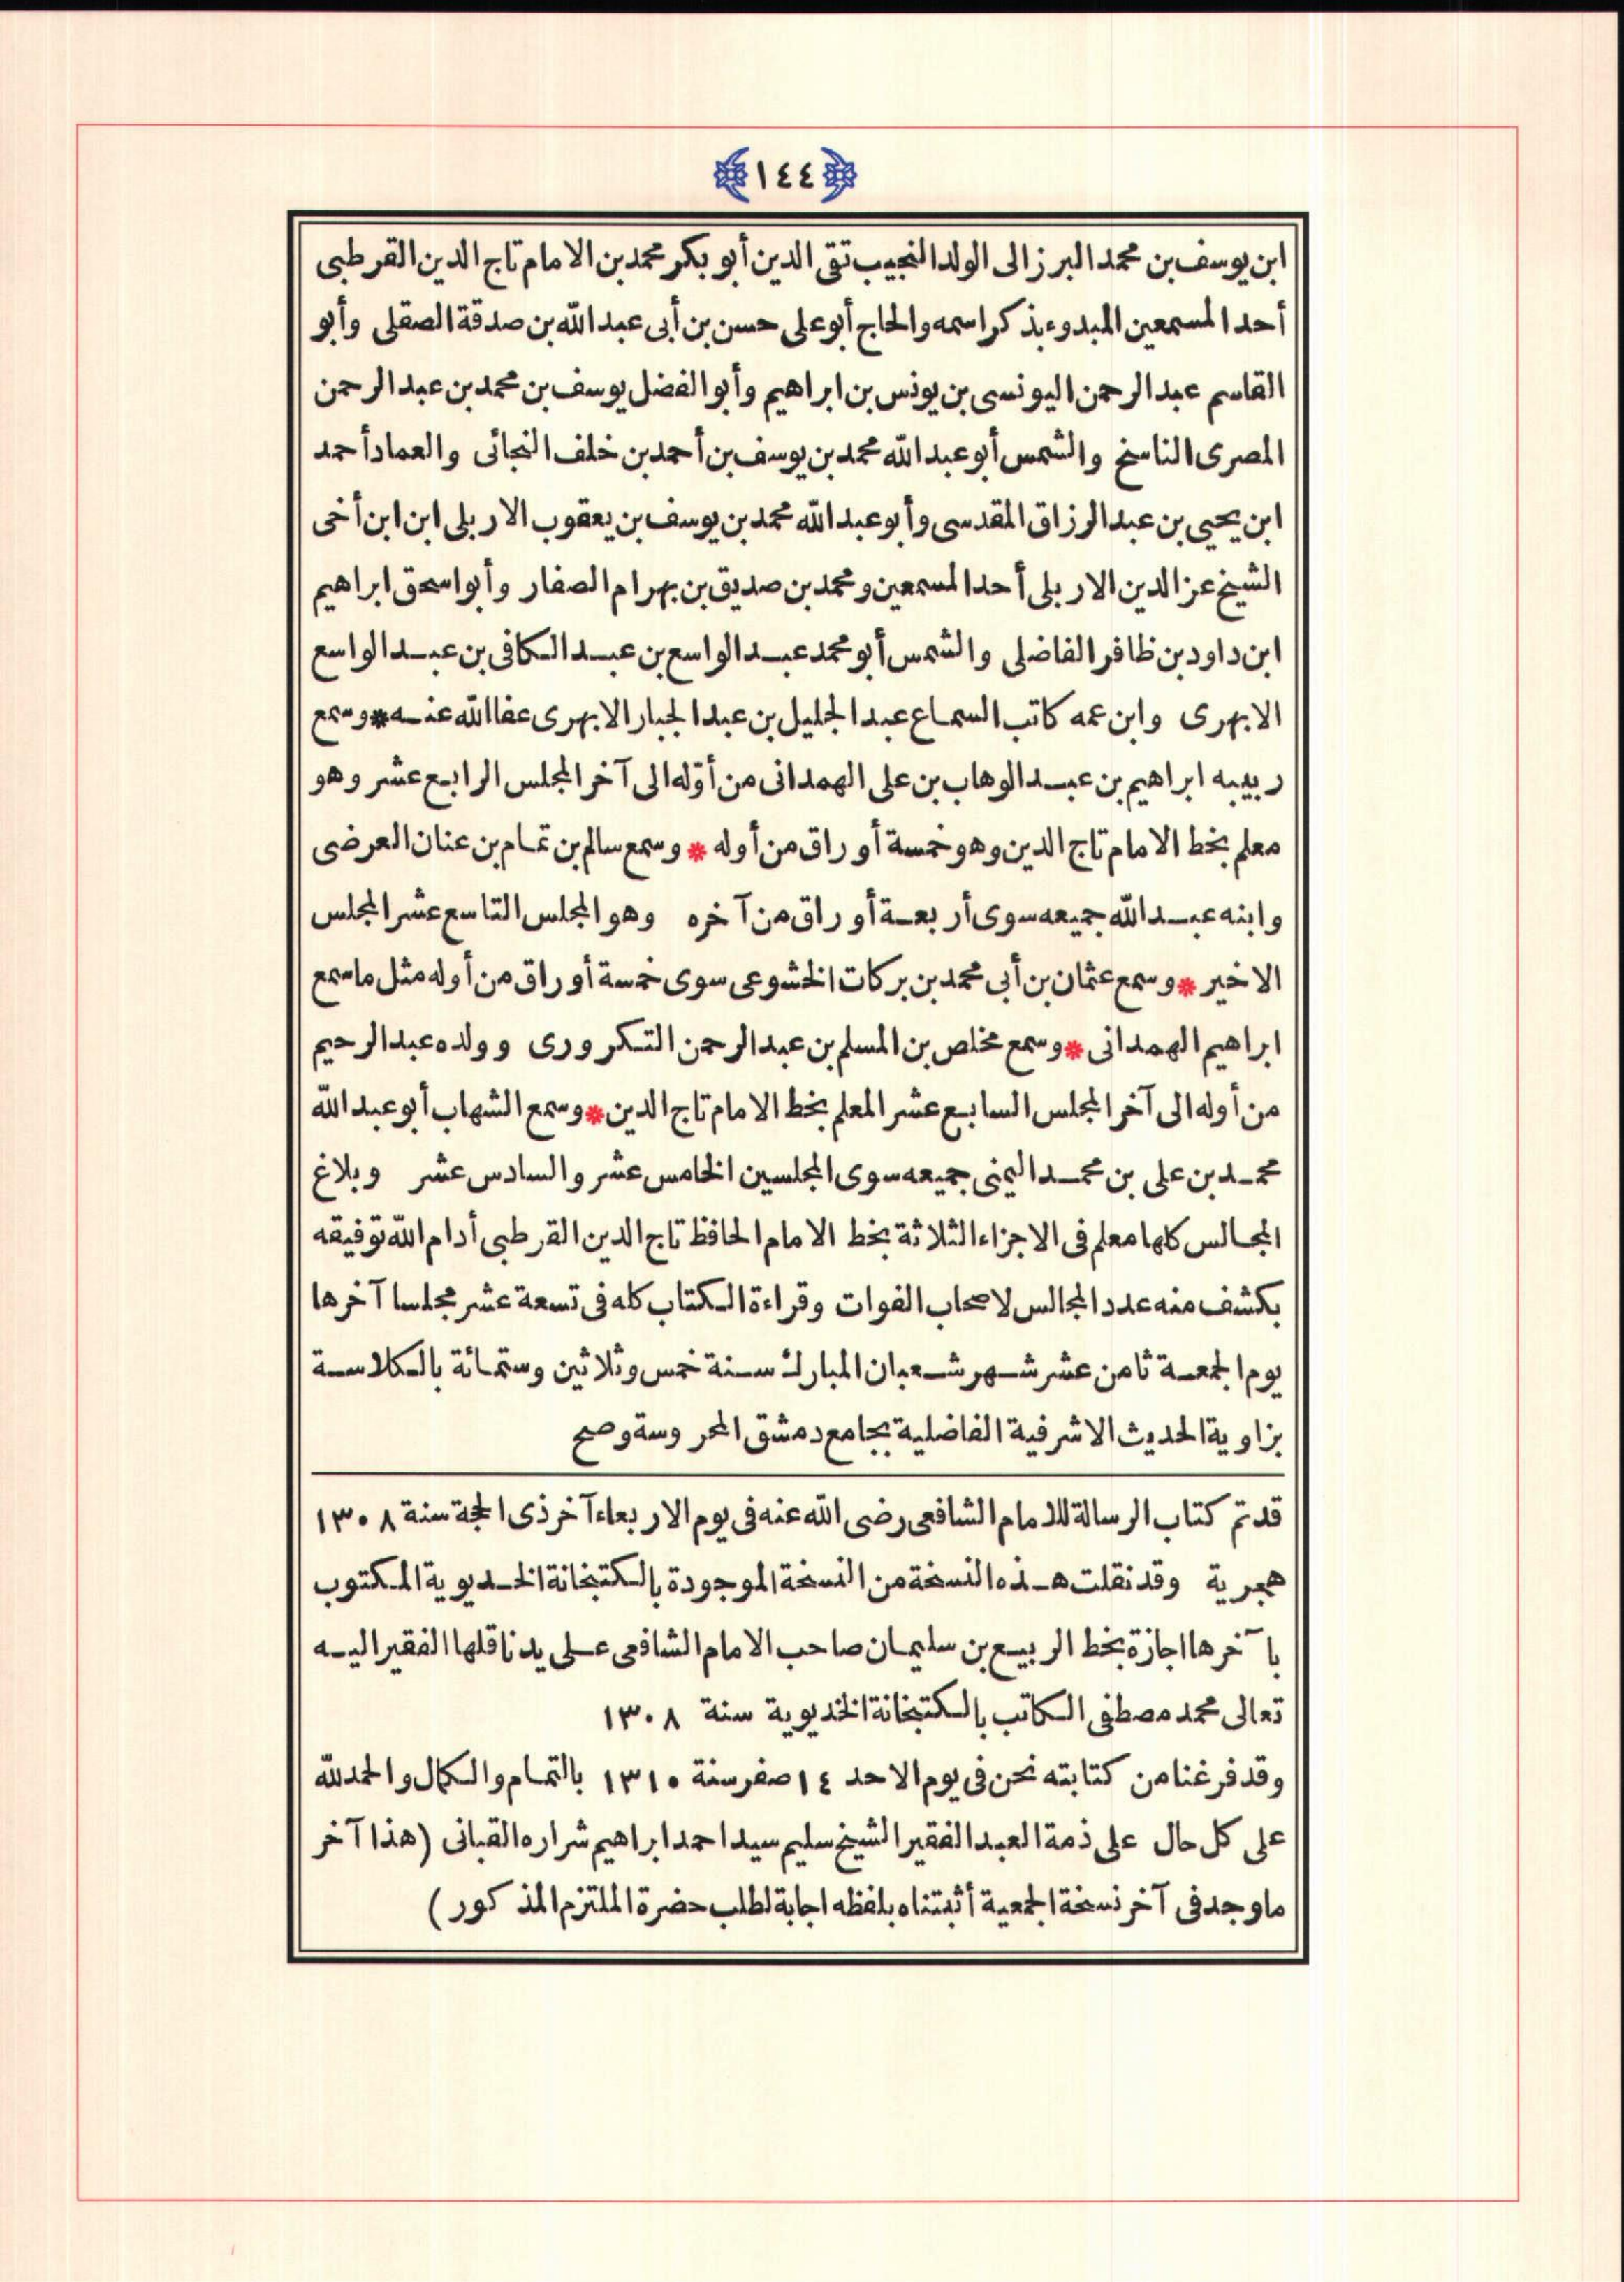 ١٤٤
ابن يوسف بن محمد البرزالى الولد النجيب تقى الدين أبو بكر محمد بن الامام تاج الدين القرطبى
أحد المسمعين المبدوء بذكر اسمه والحاج أبو على حسن بن أبى عبد الله بن صدقة الصقلى وأبو
القاسم عبد الرحمن اليونسى بن يونس بن ابراهيم وأبو الفضل يوسف بن محمد بن عبد الرحمن
المصرى الناسخ والشمس أبو عبد الله محمد بن يوسف بن أحمد بن خلف النجائى والعماد أحمد
ابن يحيى بن عبد الرزاق المقدسى وأبو عبد الله محمد بن يوسف بن يعقوب الاربلى ابن ابن أخى
الشيخ عز الدين الاربلى أحد المسمعين ومحمد بن صديق بن بهرام الصفار وأبو اسحق ابراهيم
ابن داود بن ظافر الفاضلى والشمس أبو محمد عبد الواسع بن عبد الكافى بن عبد الواسع
الابهرى وابن عمه كاتب السماع عبد الجليل بن عبد الجبار الابهرى عفا الله عنه * وسمع
ربيبه ابراهيم بن عبد الوهاب بن على الهمدانى من أوّله الى آخر المجلس الرابع عشر وهو
معلم بخط الامام تاج الدين وهو خمسة أوراق من أوله * وسمع سالم بن تمام بن عنان العرضى
وابنه عبد الله جميعه سوى أربعة أوراق من آخره وهو المجلس التاسع عشر المجلس
الاخير * وسمع عثمان بن أبى محمد بن بركات الخشوعى سوى خمسة أوراق من أوله مثل ما سمع
ابراهيم الهمدانى * وسمع مخلص بن المسلم بن عبد الرحمن التكرورى وولده عبد الرحيم
من أوله الى آخر المجلس السابع عشر المعلم بخط الامام تاج الدين * وسمع الشهاب أبو عبد الله
محمد بن على بن محمد اليمنى جميعه سوى المجلسين الخامس عشر والسادس عشر وبلاغ
المجالس كلها معلم فى الاجزاء الثلاثة بخط الامام الحافظ تاج الدين القرطبى أدام الله توفيقه
بكشف منه عدد المجالس لاصحاب الفوات وقراءة الكتاب كله فى تسعة عشر مجلسا آخرها
يوم الجمعة ثامن عشر شهر شعبان المبارك سنة خمس وثلاثين وستمائة بالكلاسة
بزاوية الحديث الاشرفية الفاضلية بجامع دمشق المحروسة وصح
قد تم كتاب الرسالة للامام الشافعى رضى الله عنه فى يوم الاربعاء آخر ذى الحجة سنة ١٣٠٨
هجرية وقد نقلت هذه النسخة من النسخة الموجودة بالكتبخانة الخديوية المكتوب
بآخرها اجازة بخط الربيع بن سليمان صاحب الامام الشافعى على يد ناقلها الفقير اليه
تعالى محمد مصطفى الكاتب بالكتبخانة الخديوية سنة ١٣٠٨
وقد فرغنا من كتابته نحن فى يوم الاحد ١٤ صفر سنة ١٣١٠ بالتمام والكمال والحمد لله
على كل حال على ذمة العبد الفقير الشيخ سليم سيد احمد ابراهيم شراره القبانى (هذا آخر
ما وجد فى آخر نسخة الجمعية أثبتناه بلفظه اجابة لطلب حضرة الملتزم المذكور)